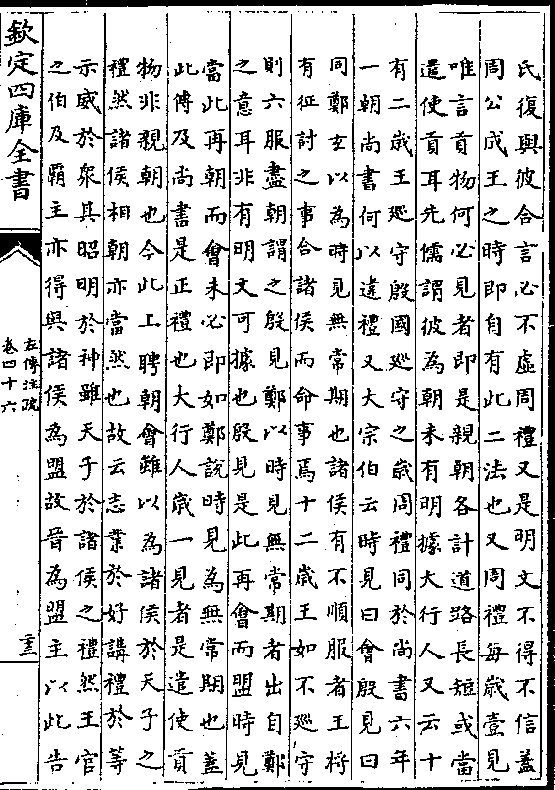 氏復與彼合言必不虛周禮又是明文不得不信蓋
周公成王之時即自有此二法也又周禮每歲壹見
唯言貢物何必見者即是親朝各計道路長短或當
遣使貢耳先儒謂彼為朝未有明據大行人又云十
有二歲王巡守殷國巡守之歲周禮同於尚書六年
一朝尚書何以違禮又大宗伯云時見曰會殷見曰
同鄭玄以為時見無常期也諸侯有不順服者王將
有征討之事合諸侯而命事焉十二歲王如不巡守
則六服盡朝謂之殷見鄭以時見無常期者出自鄭
之意耳非有明文可據也殷見是此再會而盟時見
當此再朝而會未必即如鄭說時見為無常期也蓋
此傳及尚書是正禮也大行人歲一見者是遣使貢
物非親朝也今此上聘朝會雖以為諸侯於天子之
禮然諸侯相朝亦當然也故云志業於好講禮於等
示威於衆具昭明於神雖天子於諸侯之禮然王官
之伯及霸主亦得與諸侯為盟故晉為盟主以此告
欽定四庫全書
左傳注疏
卷四十六
二十三